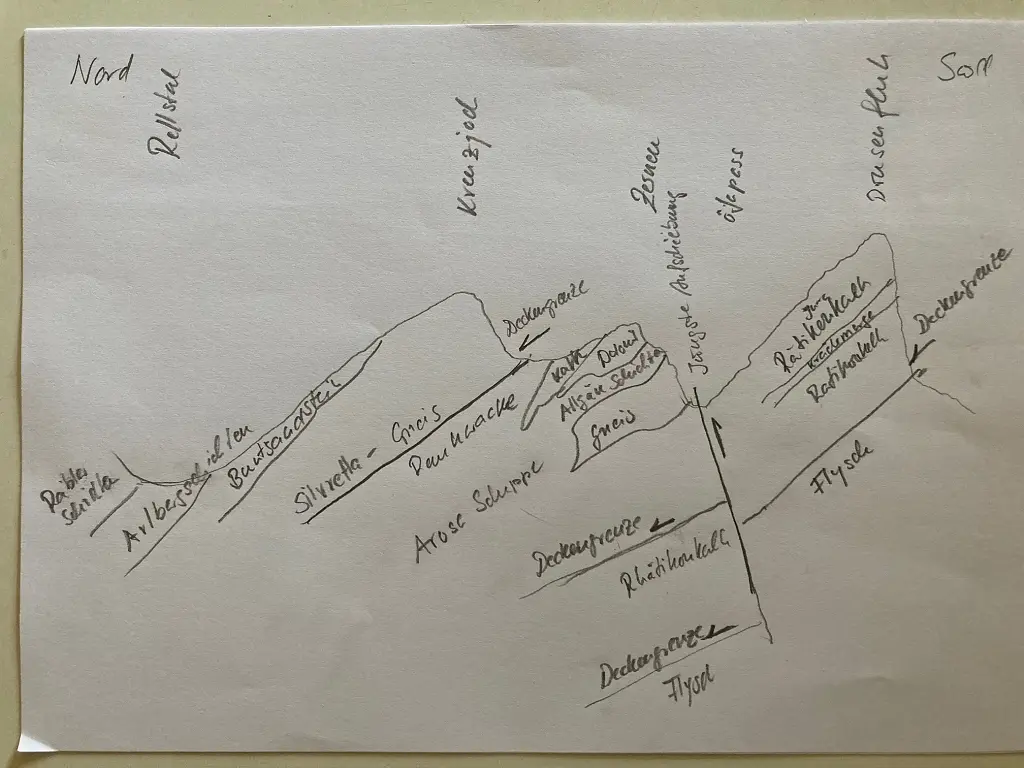 Nord
Rellstal
Kreuzjoch
Zernen
Öfapass
Drusenfluh
Jüngste Aufschiebung
Deckengrenze
Deckengrenze
Jura
Rätikonkalk
Kreidemüse
Rätikonkalk
Kalk
Dolomit
Allgäu Schichten
Gneis
Silvretta - Gneis
Buntsandstein
Arlbergschichten
Arosa Schuppe
Flysch
Deckengrenze
Rhätikonkalk
Deckengrenze
Flysch